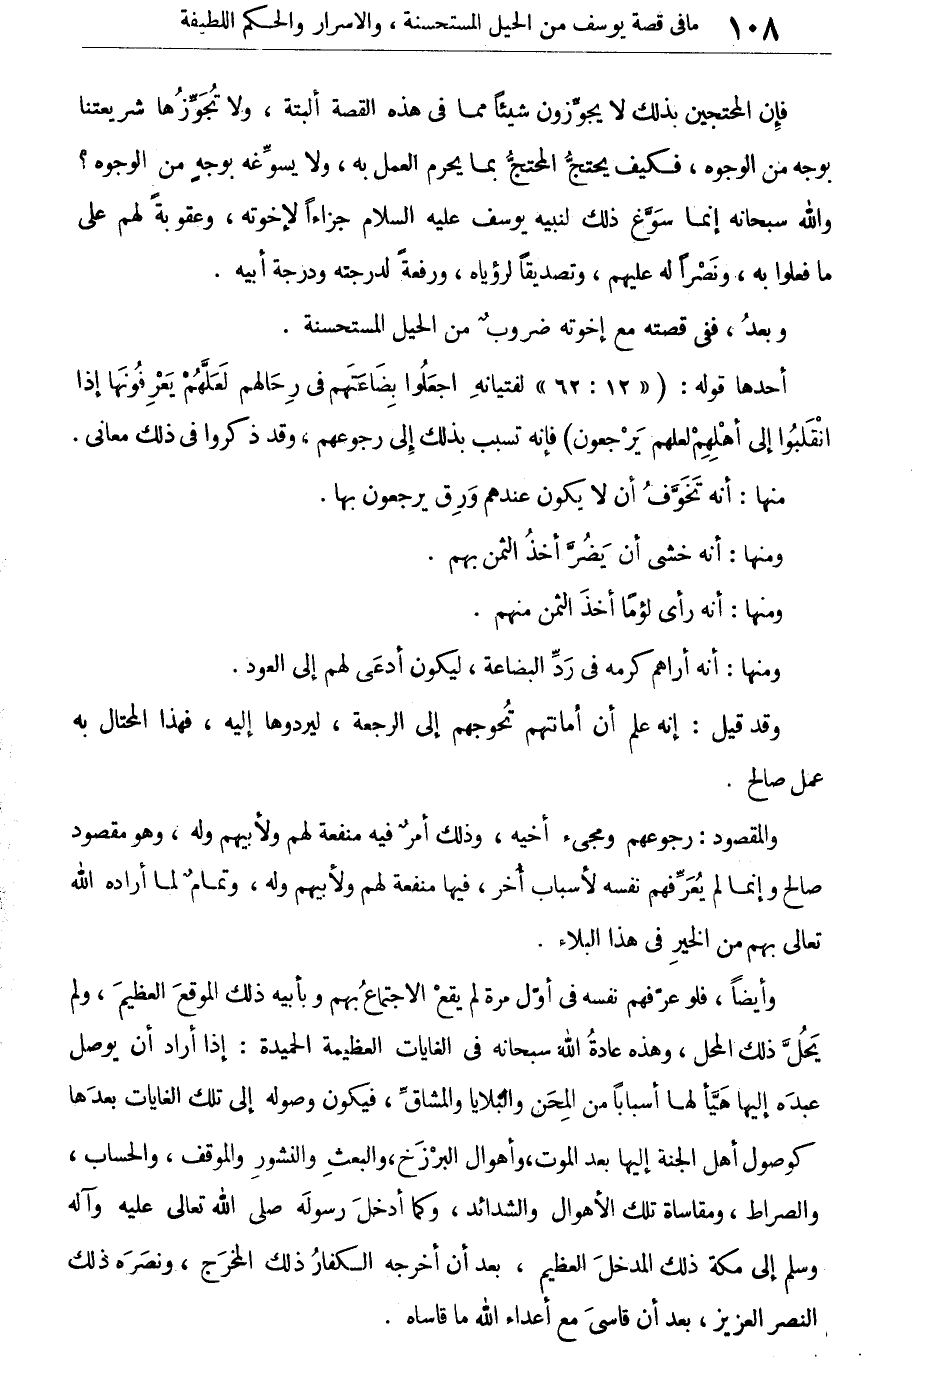 ١٠٨ مافى قصة يوسف من الحيل المستحسنة ، والاسرار والحكم اللطيفة
فإن المحتجين بذلك لا يجوّزون شيئاً مما فى هذه القصة ألبتة ، ولا تُجَوِّزُها شريعتنا
بوجه من الوجوه ، فكيف يحتجُّ المحتجُّ بما يحرم العمل به ، ولا يسوِّغه بوجهٍ من الوجوه ؟
والله سبحانه إنما سَوَّغ ذلك لنبيه يوسف عليه السلام جزاءاً لإخوته ، وعقوبةً لهم على
ما فعلوا به ، ونَصْراً له عليهم ، وتصديقاً لرؤياه ، ورفعةً لدرجته ودرجة أبيه .
وبعدُ ، ففى قصته مع إخوته ضروبٌ من الحيل المستحسنة .
أحدها قوله : ( « ١٢ : ٦٢ » لفتيانهِ اجعَلُوا بِضَاعَتَهم فى رِحَالهم لَعَلَّهُمْ يَعْرِفُونَها إذا
انْقَلبُوا إلى أهْلِهِمْ لعلهم يَرْجعون) فإنه تسبب بذلك إلى رجوعهم ، وقد ذكروا فى ذلك معانى .
منها : أنه تَخَوَّفُ أن لا يكون عندهم وَرِق يرجعون بها .
ومنها : أنه خشى أن يَضُرَّ أخذُ الثمن بهم .
ومنها : أنه رأى لؤمًا أخذَ الثمن منهم .
ومنها : أنه أراهم كرمه فى رَدِّ البضاعة ، ليكون أدعَى لهم إلى العود .
وقد قيل : إنه علم أن أمانتهم تُحوجهم إلى الرجعة ، ليردوها إليه ، فهذا المحتال به
عمل صالح .
والمقصود : رجوعهم ومجىء أخيه ، وذلك أمرٌ فيه منفعة لهم ولأبيهم وله ، وهو مقصود
صالح وإنما لم يُعَرِّفهم نفسه لأسباب أُخر ، فيها منفعة لهم ولأبيهم وله ، وتمامٌ لما أراده الله
تعالى بهم من الخيرِ فى هذا البلاء .
وأيضاً ، فلو عرّفهم نفسه فى أوّل مرة لم يقعْ الاجتماعُ بهم وبأبيه ذلك الموقعَ العظيمَ ، ولم
يَحُلَّ ذلك المحل ، وهذه عادةُ الله سبحانه فى الغايات العظيمة الحميدة : إذا أراد أن يوصل
عبدَه إليها هَيَّأ لها أسباباً من المِحَن والبَلايا والمشاقِّ ، فيكون وصوله إلى تلك الغايات بعدَها
كوصول أهل الجنة إليها بعد الموت،وأهوال البرْزَخ،والبعثِ والنشورِ والموقف ، والحساب ،
والصراط ، ومقاساة تلك الأهوال والشدائد ، وكما أدخلَ رسولَه صلى الله تعالى عليه وآله
وسلم إلى مكة ذلك المدخلَ العظيم ، بعد أن أخرجه الكفارُ ذلك المخرَج ، ونصَرَه ذلك
النصر العزيز ، بعد أن قاسىَ مع أعداء الله ما قاساه .